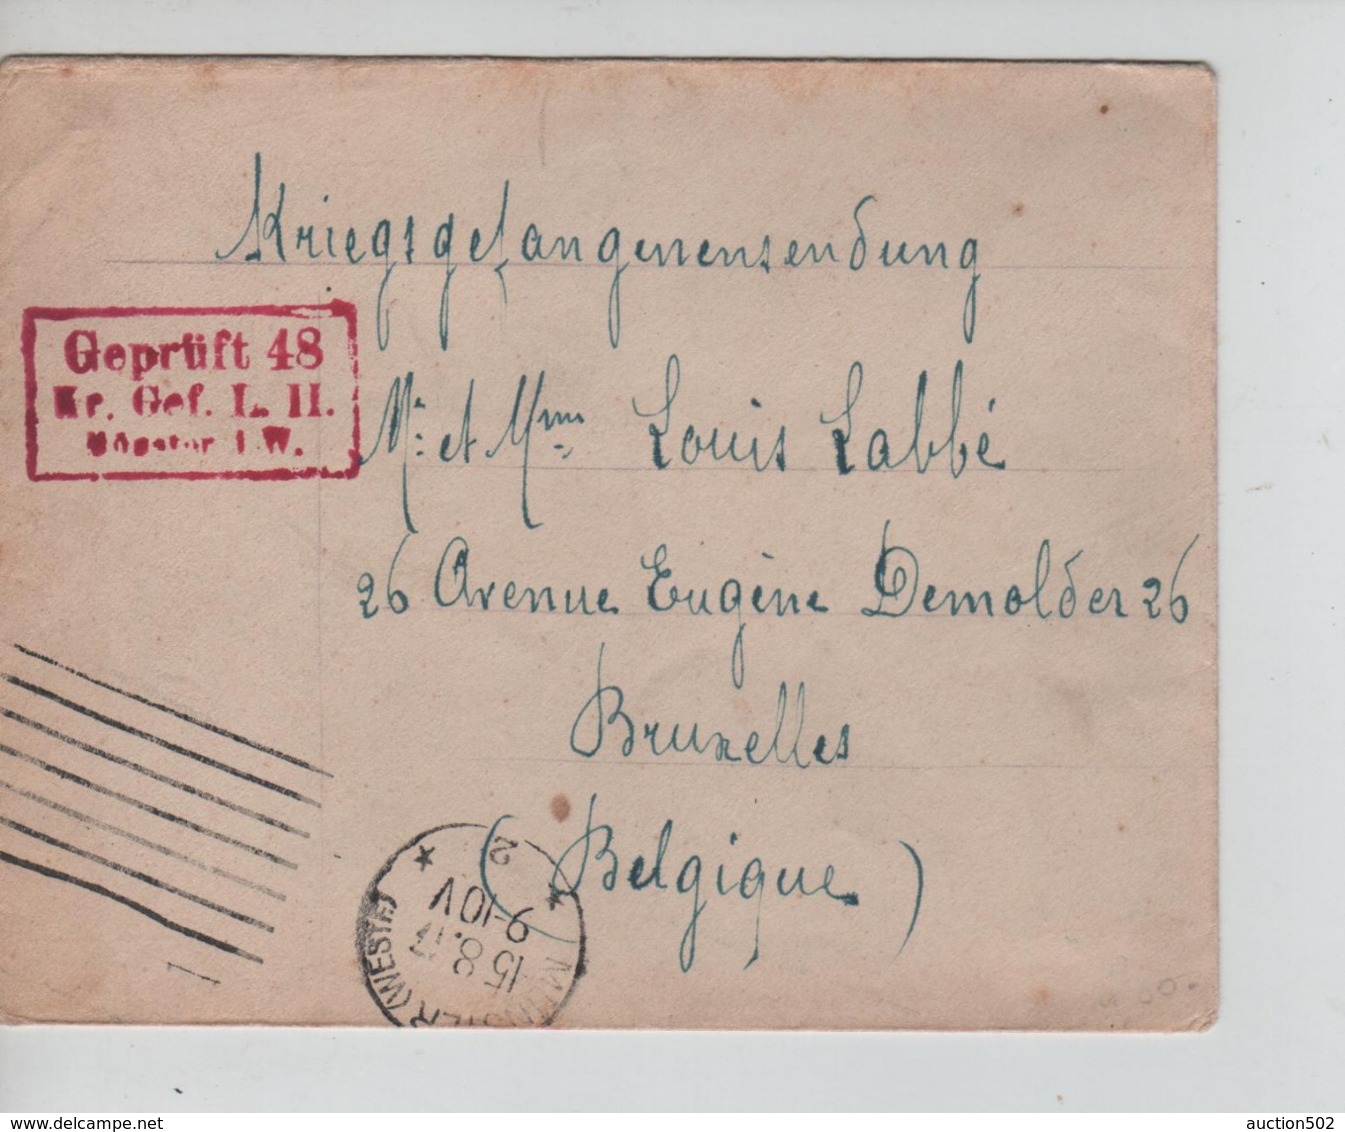 Kriegsgefangenensendung
Geprüft 48
Kr. Gef. L. II.
Münster i. W.
Mr. et Mme. Louis Labbé
26 Avenue Eugène Demolder 26
Bruxelles
(Belgique)
MÜNSTER (WESTF.)
15.8.17
9-10V
2
auction502